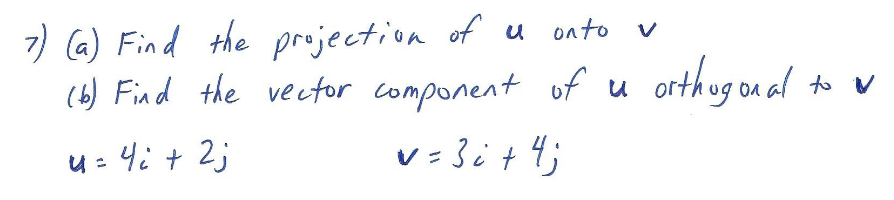 7) (a) Find the projection of u onto v
(b) Find the vector component of u orthogonal to v
u = 4i + 2j v = 3i + 4j